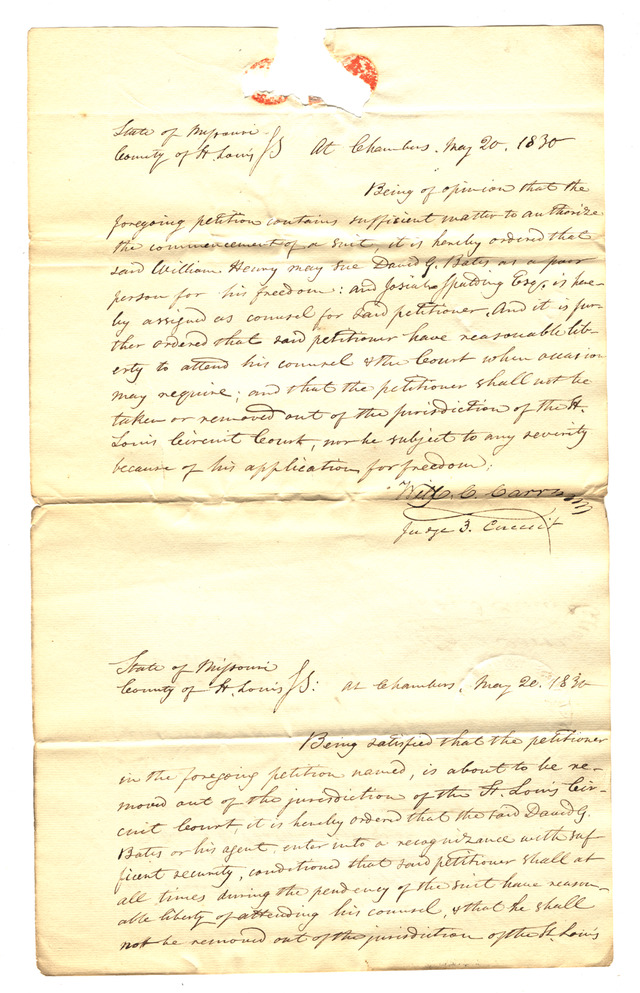 State of Missouri
County of St Louis SS At Chambers. May 20. 1830
Being of opinion that the
foregoing petition contains sufficient matter to authorize
the commencement of a suit, it is hereby ordered that
said William Henry may sue David G. Bates as a poor
person for his freedom: and Josiah Spalding Esqr. is here-
by assigned as counsel for said petitioner. And it is fur-
ther ordered that said petitioner have reasonable lib-
erty to attend his counsel & the Court when occasion
may require; and that the petitioner shall not be
taken or removed out of the jurisdiction of the St.
Louis Circuit Court, nor be subject to any severity
because of his application for freedom.
Will. C. Carr
Judge 3. Circuit
State of Missouri
County of St. Louis SS: At Chambers, May 20. 1830
Being satisfied that the petitioner
in the foregoing petition named, is about to be re-
moved out of the jurisdiction of the St. Louis Cir-
cuit Court, it is hereby ordered that the said David G.
Bates or his agent enter into a recognizance with suf
ficient security, conditioned that said petitioner shall at
all times during the pendency of the suit have reason-
able liberty of attending his counsel, & that he shall
not be removed out of the jurisdiction of the St. Louis